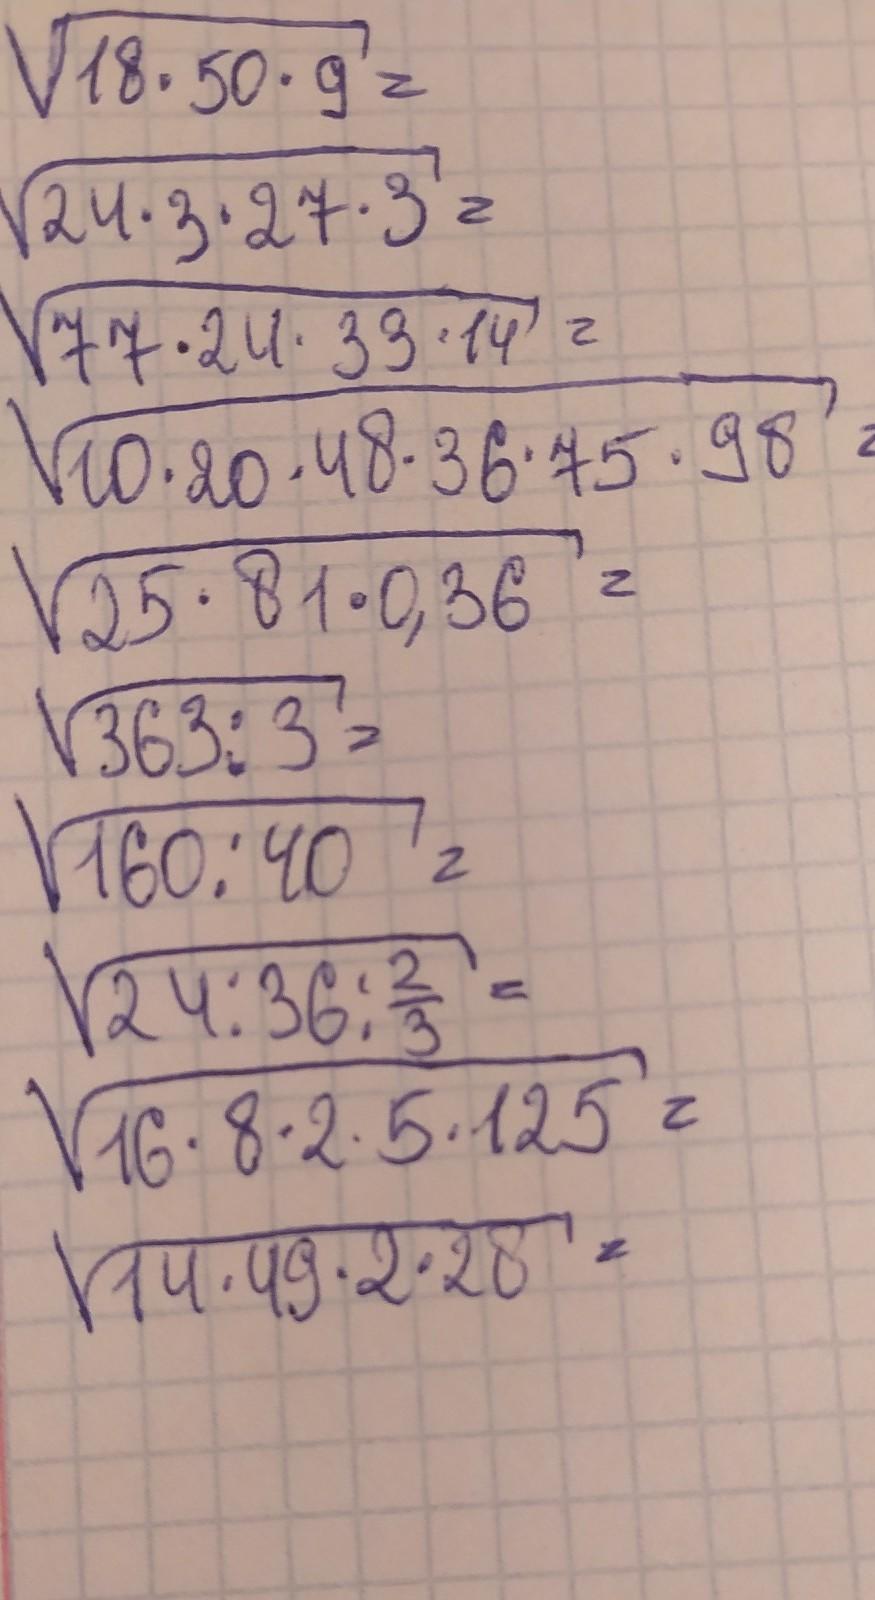 √18·50·9 =
√24·3·27·3 =
√77·24·33·14 =
√10·20·48·36·75·98 =
√25·81·0,36 =
√363:3 =
√160:40 =
√24:36:2/3 =
√16·8·2·5·125 =
√14·49·2·28 =